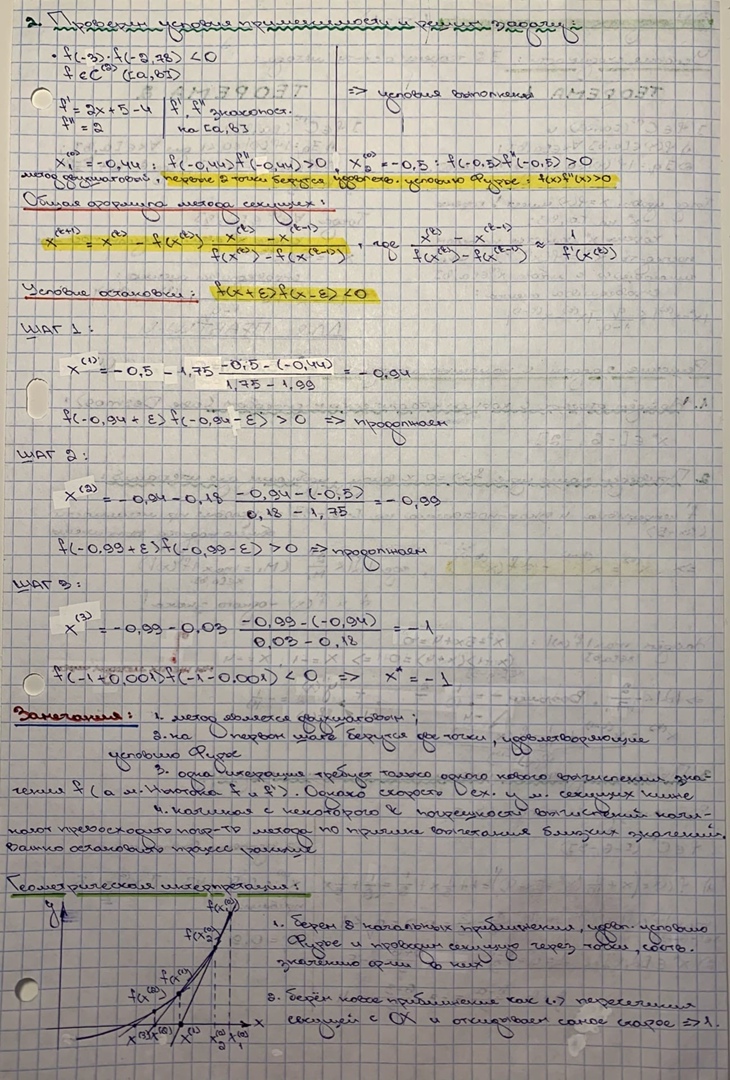 2. Проверим условия применимости и решим задачу:
• f(-3)·f(-2,78) < 0
f ∈ C⁽²⁾([a,b])
f' = 2x+5-4 | f', f'' знакопост.
f'' = 2 | на [a,b]
=> условия выполнены
x₁⁽⁰⁾ = -0,44 : f(-0,44)f''(-0,44) > 0, x₂⁽⁰⁾ = -0,5 : f(-0,5)f''(-0,5) > 0
метод двушаговый, первые 2 точки берутся удовлетв. условию Фурье: f(x)f''(x)>0
Общая формула метода секущих:
x⁽ᵏ⁺¹⁾ = x⁽ᵏ⁾ - f(x⁽ᵏ⁾) (x⁽ᵏ⁾ - x⁽ᵏ⁻¹⁾)/(f(x⁽ᵏ⁾) - f(x⁽ᵏ⁻¹⁾)), где (x⁽ᵏ⁾ - x⁽ᵏ⁻¹⁾)/(f(x⁽ᵏ⁾) - f(x⁽ᵏ⁻¹⁾)) ≈ 1/f'(x⁽ᵏ⁾)
Условие остановки: f(x+ε)f(x-ε)<0
ШАГ 1:
x⁽¹⁾ = -0,5 - 1,75 (-0,5 - (-0,44))/(1,75 - 1,99) = -0,94
f(-0,94+ε)f(-0,94-ε) > 0 => продолжаем
ШАГ 2:
x⁽²⁾ = -0,94 - 0,18 (-0,94 - (-0,5))/(0,18 - 1,75) = -0,99
f(-0,99+ε)f(-0,99-ε) > 0 => продолжаем
ШАГ 3:
x⁽³⁾ = -0,99 - 0,03 (-0,99 - (-0,94))/(0,03 - 0,18) = -1
f(-1+0,001)f(-1-0,001) < 0 => x* = -1
Замечания: 1. метод является двушаговым;
2. на первом шаге берутся две точки, удовлетворяющие
условию Фурье
3. одна итерация требует только одного нового вычисления зна-
чения f (а м. Ньютона f и f'). Однако скорость сх. у м. секущих ниже
4. начиная с некоторого k погрешности вычислений начи-
нают превосходить погр-ть метода по причине вычитания близких значений.
Важно остановить процесс раньше
Геометрическая интерпретация:
y
f(x₁⁽⁰⁾)
f(x₂⁽⁰⁾)
f(x⁽¹⁾)
f(x⁽²⁾)
x⁽³⁾ x⁽²⁾ x⁽¹⁾ x₂⁽⁰⁾ x₁⁽⁰⁾ x
1. берем 2 начальных приближения, удовл. условию
Фурье и проводим секущую через точки, соотв.
значению ф-ии в них
2. берём новое приближение как (·) пересечения
секущей с OX и откидываем самое старое => 1.